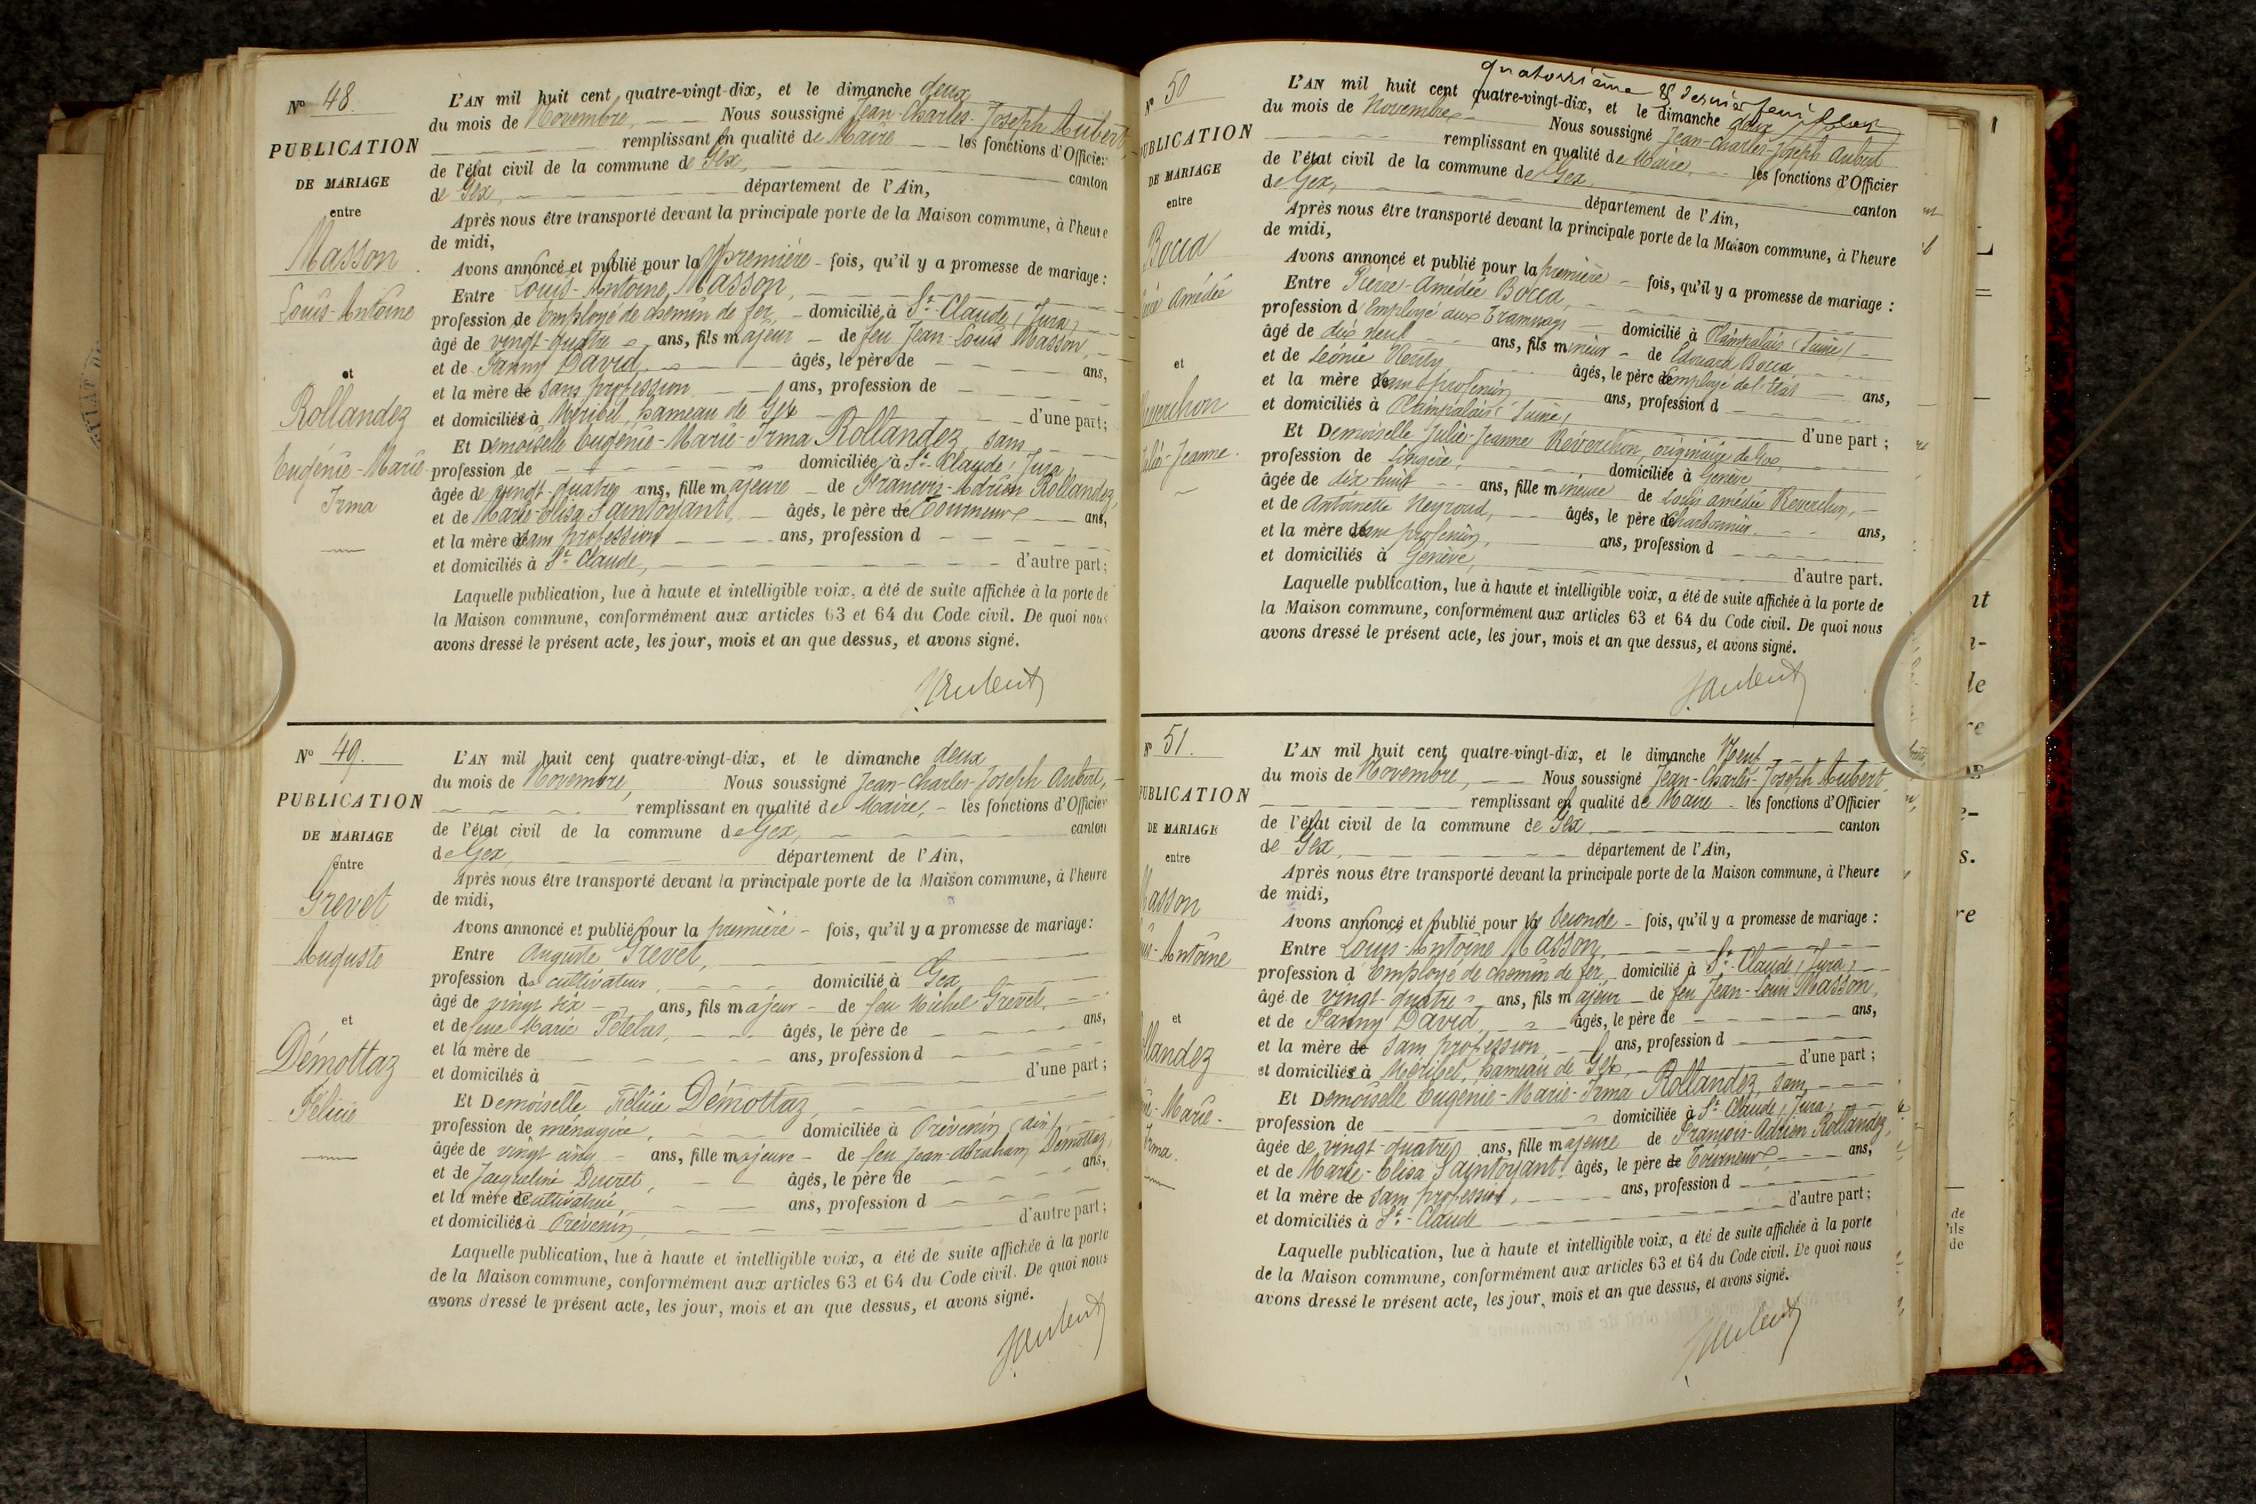 N° 48.
PUBLICATION
DE MARIAGE
entre
Masson
Louis-Antoine
et
Rollandez
Eugénie-Marie-
Irma
L'AN mil huit cent quatre-vingt-dix, et le dimanche deux
du mois de Novembre, Nous soussigné Jean-Charles-Joseph Aubert,
remplissant en qualité de Maire les fonctions d'Officier
de l'état civil de la commune de Gex, canton
de Gex, département de l'Ain,
Après nous être transporté devant la principale porte de la Maison commune, à l'heure
de midi,
Avons annoncé et publié pour la première fois, qu'il y a promesse de mariage :
Entre Louis-Antoine Masson,
profession de Employé de chemin de fer domicilié à St-Claude, Jura,
âgé de vingt-quatre ans, fils majeur de feu Jean-Louis Masson,
et de Fanny David, âgés, le père de ans,
et la mère de sans profession ans, profession de
et domiciliés à Méribel, hameau de Gex d'une part ;
Et Demoiselle Eugénie-Marie-Irma Rollandez, sans
profession de domiciliée à St-Claude, Jura,
âgée de vingt-quatre ans, fille majeure de François-Adrien Rollandez,
et de Marie-Elisa Saintoyant, âgés, le père de Tourneur ans,
et la mère de sans profession ans, profession d
et domiciliés à St Claude, d'autre part ;
Laquelle publication, lue à haute et intelligible voix, a été de suite affichée à la porte de
la Maison commune, conformément aux articles 63 et 64 du Code civil. De quoi nous
avons dressé le présent acte, les jour, mois et an que dessus, et avons signé.
J. Aubert
N° 49.
PUBLICATION
DE MARIAGE
entre
Grevet
Auguste
et
Démottaz
Félicie
L'AN mil huit cent quatre-vingt-dix, et le dimanche deux
du mois de Novembre, Nous soussigné Jean-Charles-Joseph Aubert,
remplissant en qualité de Maire, les fonctions d'Officier
de l'état civil de la commune de Gex, canton
de Gex, département de l'Ain,
Après nous être transporté devant la principale porte de la Maison commune, à l'heure
de midi,
Avons annoncé et publié pour la première fois, qu'il y a promesse de mariage :
Entre Auguste Grevet,
profession de cultivateur, domicilié à Gex,
âgé de vingt six ans, fils majeur de feu Michel Grevet,
et de feue Marie Petelas, âgés, le père de ans,
et la mère de ans, profession d
et domiciliés à d'une part ;
Et Demoiselle Félicie Démottaz,
profession de ménagère, domiciliée à Prévenin (Ain)
âgée de vingt cinq ans, fille majeure de feu Jean-Abraham Démottaz,
et de Jacqueline Duret, âgés, le père de ans,
et la mère de cultivatrice ans, profession d
et domiciliés à Prévenin, d'autre part ;
Laquelle publication, lue à haute et intelligible voix, a été de suite affichée à la porte
de la Maison commune, conformément aux articles 63 et 64 du Code civil. De quoi nous
avons dressé le présent acte, les jour, mois et an que dessus, et avons signé.
J. Aubert
quatorzième & dernier feuillet
N° 50
PUBLICATION
DE MARIAGE
entre
Bocca
Amédée
et
Reverchon
Julie-Jeanne
L'AN mil huit cent quatre-vingt-dix, et le dimanche deux
du mois de Novembre Nous soussigné Jean-Charles-Joseph Aubert
remplissant en qualité de Maire, les fonctions d'Officier
de l'état civil de la commune de Gex, canton
de Gex, département de l'Ain,
Après nous être transporté devant la principale porte de la Maison commune, à l'heure
de midi,
Avons annoncé et publié pour la première fois, qu'il y a promesse de mariage :
Entre Pierre-Amédée Bocca,
profession d'Employé aux Tramways domicilié à Plainpalais (Suisse)
âgé de dix neuf ans, fils mineur de Edouard Bocca
et de Léonie âgés, le père de Employé de l'Etat ans,
et la mère de sans profession ans, profession d
et domiciliés à Plainpalais (Suisse) d'une part ;
Et Demoiselle Julie-Jeanne Reverchon, originaire de Gex,
profession de Lingère, domiciliée à Genève
âgée de dix huit ans, fille mineure de Louis Amédée Reverchon,
et de Antoinette Neyroud, âgés, le père de Charbonnier ans,
et la mère de sans profession, ans, profession d
et domiciliés à Genève, d'autre part.
Laquelle publication, lue à haute et intelligible voix, a été de suite affichée à la porte de
la Maison commune, conformément aux articles 63 et 64 du Code civil. De quoi nous
avons dressé le présent acte, les jour, mois et an que dessus, et avons signé.
J. Aubert
N° 51.
PUBLICATION
DE MARIAGE
entre
Masson
Antoine
et
llandez
Marie-
Irma
L'AN mil huit cent quatre-vingt-dix, et le dimanche Neuf
du mois de Novembre, Nous soussigné Jean-Charles-Joseph Aubert,
remplissant en qualité de Maire les fonctions d'Officier
de l'état civil de la commune de Gex canton
de Gex, département de l'Ain,
Après nous être transporté devant la principale porte de la Maison commune, à l'heure
de midi,
Avons annoncé et publié pour la Seconde fois, qu'il y a promesse de mariage :
Entre Louis-Antoine Masson,
profession d'Employé de chemin de fer domicilié à St-Claude, Jura,
âgé de vingt-quatre ans, fils majeur de feu Jean-Louis Masson,
et de Fanny David, âgés, le père de ans,
et la mère de sans profession, ans, profession d
et domiciliés à Méribel, hameau de Gex, d'une part ;
Et Demoiselle Eugénie-Marie-Irma Rollandez, sans
profession de domiciliée à St Claude, Jura,
âgée de vingt-quatre ans, fille majeure de François-Adrien Rollandez,
et de Marie-Elisa Saintoyant âgés, le père de Tourneur, ans,
et la mère de sans profession, ans, profession d
et domiciliés à St-Claude d'autre part ;
Laquelle publication, lue à haute et intelligible voix, a été de suite affichée à la porte
de la Maison commune, conformément aux articles 63 et 64 du Code civil. De quoi nous
avons dressé le présent acte, les jour, mois et an que dessus, et avons signé.
J. Aubert